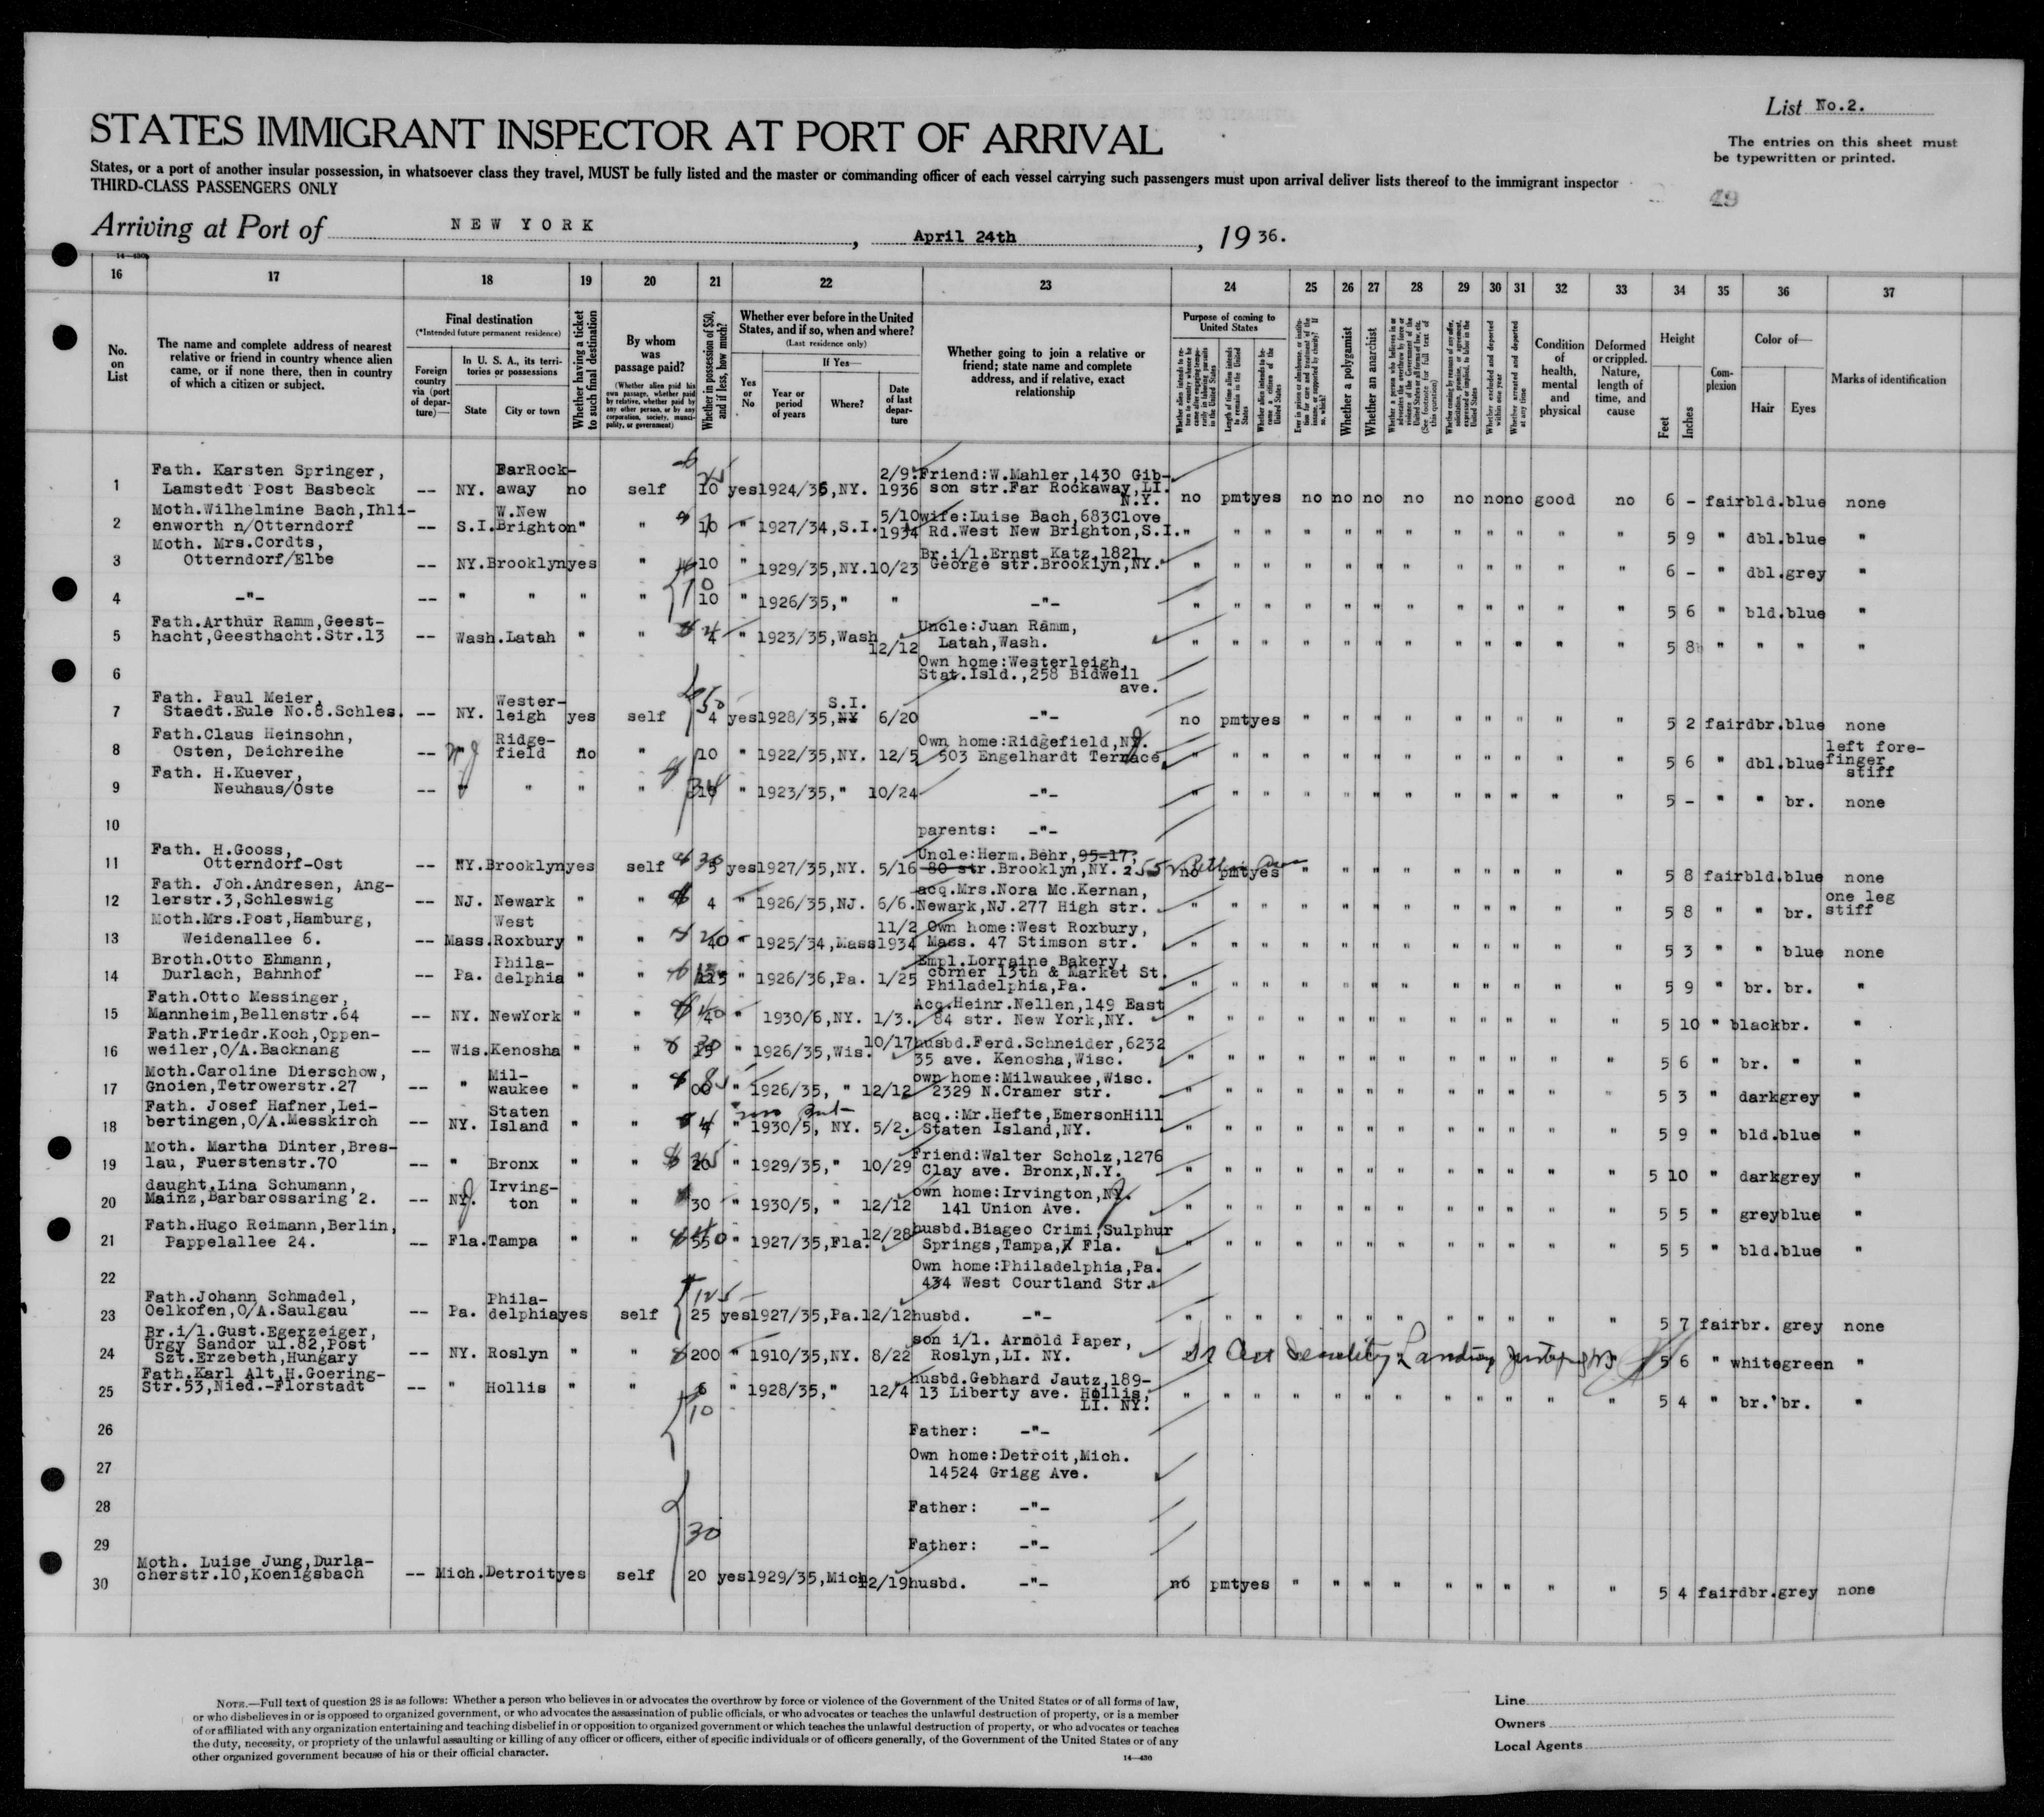 List No.2.
STATES IMMIGRANT INSPECTOR AT PORT OF ARRIVAL
The entries on this sheet must
be typewritten or printed.
States, or a port of another insular possession, in whatsoever class they travel, MUST be fully listed and the master or commanding officer of each vessel carrying such passengers must upon arrival deliver lists thereof to the immigrant inspector
THIRD-CLASS PASSENGERS ONLY
49
Arriving at Port of NEW YORK, April 24th, 1936.
16 17 18 19 20 21 22 23 24 25 26 27 28 29 30 31 32 33 34 35 36 37
No. on List
The name and complete address of nearest relative or friend in country whence alien came, or if none there, then in country of which a citizen or subject.
Final destination
(*Intended future permanent residence)
Foreign country via (port of departure)
In U. S. A., its territories or possessions
State
City or town
Whether having a ticket to such final destination
By whom was passage paid?
(Whether alien paid his own passage, whether paid by relative, whether paid by any other person, or by any corporation, society, municipality, or government)
Whether in possession of $50, and if less, how much?
Whether ever before in the United States, and if so, when and where?
(Last residence only)
Yes or No
If Yes—
Year or period of years
Where?
Date of last departure
Whether going to join a relative or friend; state name and complete address, and if relative, exact relationship
Purpose of coming to United States
Whether a polygamist
Whether an anarchist
Condition of health, mental and physical
Deformed or crippled. Nature, length of time, and cause
Height
Feet
Inches
Complexion
Color of—
Hair
Eyes
Marks of identification
1 Fath. Karsten Springer, Lamstedt Post Basbeck -- NY. FarRockaway no self 10 yes 1924/36,NY. 2/9. 1936 Friend:W.Mahler,1430 Gibson str.Far Rockaway,LI. N.Y. no pmt yes no no no no no no no good no 6 - fair bld. blue none
2 Moth.Wilhelmine Bach,Ihlienworth n/Otterndorf -- S.I. W.New Brighton " " 10 " 1927/34,S.I. 5/10 1934 wife:Luise Bach,683Clove Rd.West New Brighton,S.I. " " " " " " " " " " " " 5 9 " dbl. blue "
3 Moth. Mrs.Cordts, Otterndorf/Elbe -- NY. Brooklyn yes " 10 " 1929/35,NY. 10/23 Br.i/l.Ernst Katz,1821 George str.Brooklyn,NY. " " " " " " " " " " " " 6 - " dbl. grey "
4 -"- -- " " " " 10 " 1926/35," " -"- " " " " " " " " " " " " 5 6 " bld. blue "
5 Fath.Arthur Ramm,Geesthacht,Geesthacht.Str.13 -- Wash. Latah " " 4 " 1923/35,Wash 12/12 Uncle:Juan Ramm, Latah,Wash. " " " " " " " " " " " " 5 8 " " " "
6 Own home:Westerleigh, Stat.Isld.,258 Bidwell ave.
7 Fath. Paul Meier, Staedt.Eule No.8.Schles. -- NY. Westerleigh yes self 50 4 yes 1928/35,NY S.I. 6/20 -"- no pmt yes " " " " " " " " " 5 2 fair dbr. blue none
8 Fath.Claus Heinsohn, Osten, Deichreihe -- NJ Ridgefield no " 10 " 1922/35,NY. 12/5 Own home:Ridgefield,NY. 503 Engelhardt Terrace " " " " " " " " " " " " 5 6 " dbl. blue left forefinger stiff
9 Fath. H.Kuever, Neuhaus/Oste -- " " " " 10 " 1923/35," 10/24 -"- " " " " " " " " " " " " 5 - " " br. none
10 parents: -"-
11 Fath. H.Gooss, Otterndorf-Ost -- NY. Brooklyn yes self 5 yes 1927/35,NY. 5/16 Uncle:Herm.Behr,95-17, 80 str.Brooklyn,NY. 255 no pmt yes " " " " " " " " " 5 8 fair bld. blue none
12 Fath. Joh.Andresen, Anglerstr.3,Schleswig -- NJ. Newark " " 4 " 1926/35,NJ. 6/6. acq.Mrs.Nora Mc.Kernan, Newark,NJ.277 High str. " " " " " " " " " " " " 5 8 " " br. one leg stiff
13 Moth.Mrs.Post,Hamburg, Weidenallee 6. -- Mass. West Roxbury " " 40 " 1925/34,Mass 11/2 1934 Own home:West Roxbury, Mass. 47 Stimson str. " " " " " " " " " " " " 5 3 " " blue none
14 Broth.Otto Ehmann, Durlach, Bahnhof -- Pa. Philadelphia " " " 1926/36,Pa. 1/25 Empl.Lorraine Bakery, corner 13th & Market St. Philadelphia,Pa. " " " " " " " " " " " " 5 9 " br. br. "
15 Fath.Otto Messinger, Mannheim,Bellenstr.64 -- NY. NewYork " " 40 " 1930/6,NY. 1/3. Acq.Heinr.Nellen,149 East 84 str. New York,NY. " " " " " " " " " " " " 5 10 " black br. "
16 Fath.Friedr.Koch,Oppenweiler,O/A.Backnang -- Wis. Kenosha " " 30 " 1926/35,Wis. 10/17 husbd.Ferd.Schneider,6232 35 ave. Kenosha,Wisc. " " " " " " " " " " " " 5 6 " br. " "
17 Moth.Caroline Dierschow, Gnoien,Tetrowerstr.27 -- " Milwaukee " " " 1926/35, " 12/12 own home:Milwaukee,Wisc. 2329 N.Cramer str. " " " " " " " " " " " " 5 3 " dark grey "
18 Fath. Josef Hafner,Leibertingen,O/A.Messkirch -- NY. Staten Island " " 4 " 1930/5, NY. 5/2. acq.:Mr.Hefte,EmersonHill Staten Island,NY. " " " " " " " " " " " " 5 9 " bld. blue "
19 Moth. Martha Dinter,Breslau, Fuerstenstr.70 -- " Bronx " " 20 " 1929/35," 10/29 Friend:Walter Scholz,1276 Clay ave. Bronx,N.Y. " " " " " " " " " " " " 5 10 " dark grey "
20 daught.Lina Schumann, Mainz,Barbarossaring 2. -- NY. Irvington " " 30 " 1930/5, " 12/12 own home:Irvington,NY. 141 Union Ave. " " " " " " " " " " " " 5 5 " grey blue "
21 Fath.Hugo Reimann,Berlin, Pappelallee 24. -- Fla. Tampa " " 55 " 1927/35,Fla. 12/28 husbd.Biageo Crimi,Sulphur Springs,Tampa, Fla. " " " " " " " " " " " " 5 5 " bld. blue "
22 Own home:Philadelphia,Pa. 434 West Courtland Str.
23 Fath.Johann Schmadel, Oelkofen,O/A.Saulgau -- Pa. Philadelphia yes self 125 25 yes 1927/35,Pa. 12/12 husbd. -"- " " " " " " " " " " " " 5 7 fair br. grey none
24 Br.i/l.Gust.Egerzeiger, Urgy Sandor ul.82,Post Szt.Erzebeth,Hungary -- NY. Roslyn " " 200 " 1910/35,NY. 8/22 son i/l. Arnold Paper, Roslyn,LI. NY. Senility Landing 5 6 " white green "
25 Fath.Karl Alt,H.Goering-Str.53,Nied.-Florstadt -- " Hollis " " 6 10 " 1928/35," 12/4 husbd.Gebhard Jautz,189-13 Liberty ave. Hollis, LI. NY. " " " " " " " " " " " " 5 4 " br. br. "
26 Father: -"-
27 Own home:Detroit,Mich. 14524 Grigg Ave.
28 Father: -"-
29 30 Father: -"-
30 Moth. Luise Jung,Durlacherstr.10,Koenigsbach -- Mich. Detroit yes self 20 yes 1929/35,Mich 12/19 husbd. -"- no pmt yes " " " " " " " " " 5 4 fair dbr. grey none
NOTE.—Full text of question 28 is as follows: Whether a person who believes in or advocates the overthrow by force or violence of the Government of the United States or of all forms of law,
or who disbelieves in or is opposed to organized government, or who advocates the assassination of public officials, or who advocates or teaches the unlawful destruction of property, or is a member
of or affiliated with any organization entertaining and teaching disbelief in or opposition to organized government or which teaches the unlawful destruction of property, or who advocates or teaches
the duty, necessity, or propriety of the unlawful assaulting or killing of any officer or officers, either of specific individuals or of officers generally, of the Government of the United States or of any
other organized government because of his or their official character.
14—430
Line
Owners
Local Agents